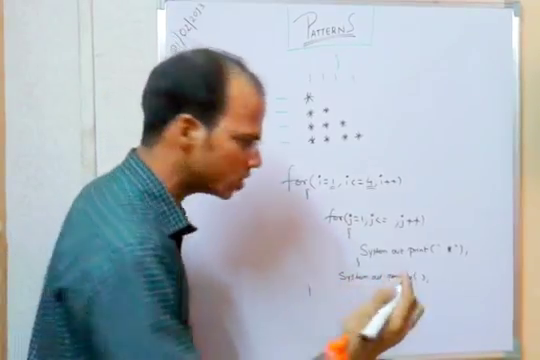 01/02/2013
PATTERNS
*
* *
* * *
* * * *
for(i=1, i<=4, i++)
{
for(j=1, j<= , j++)
{
System.out.print(" *");
}
System.out. ( );
}